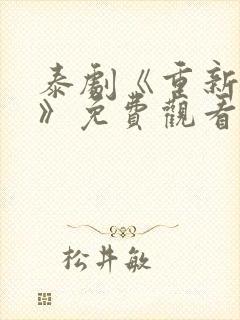 泰劇《重新
》免費觀看
松井敏